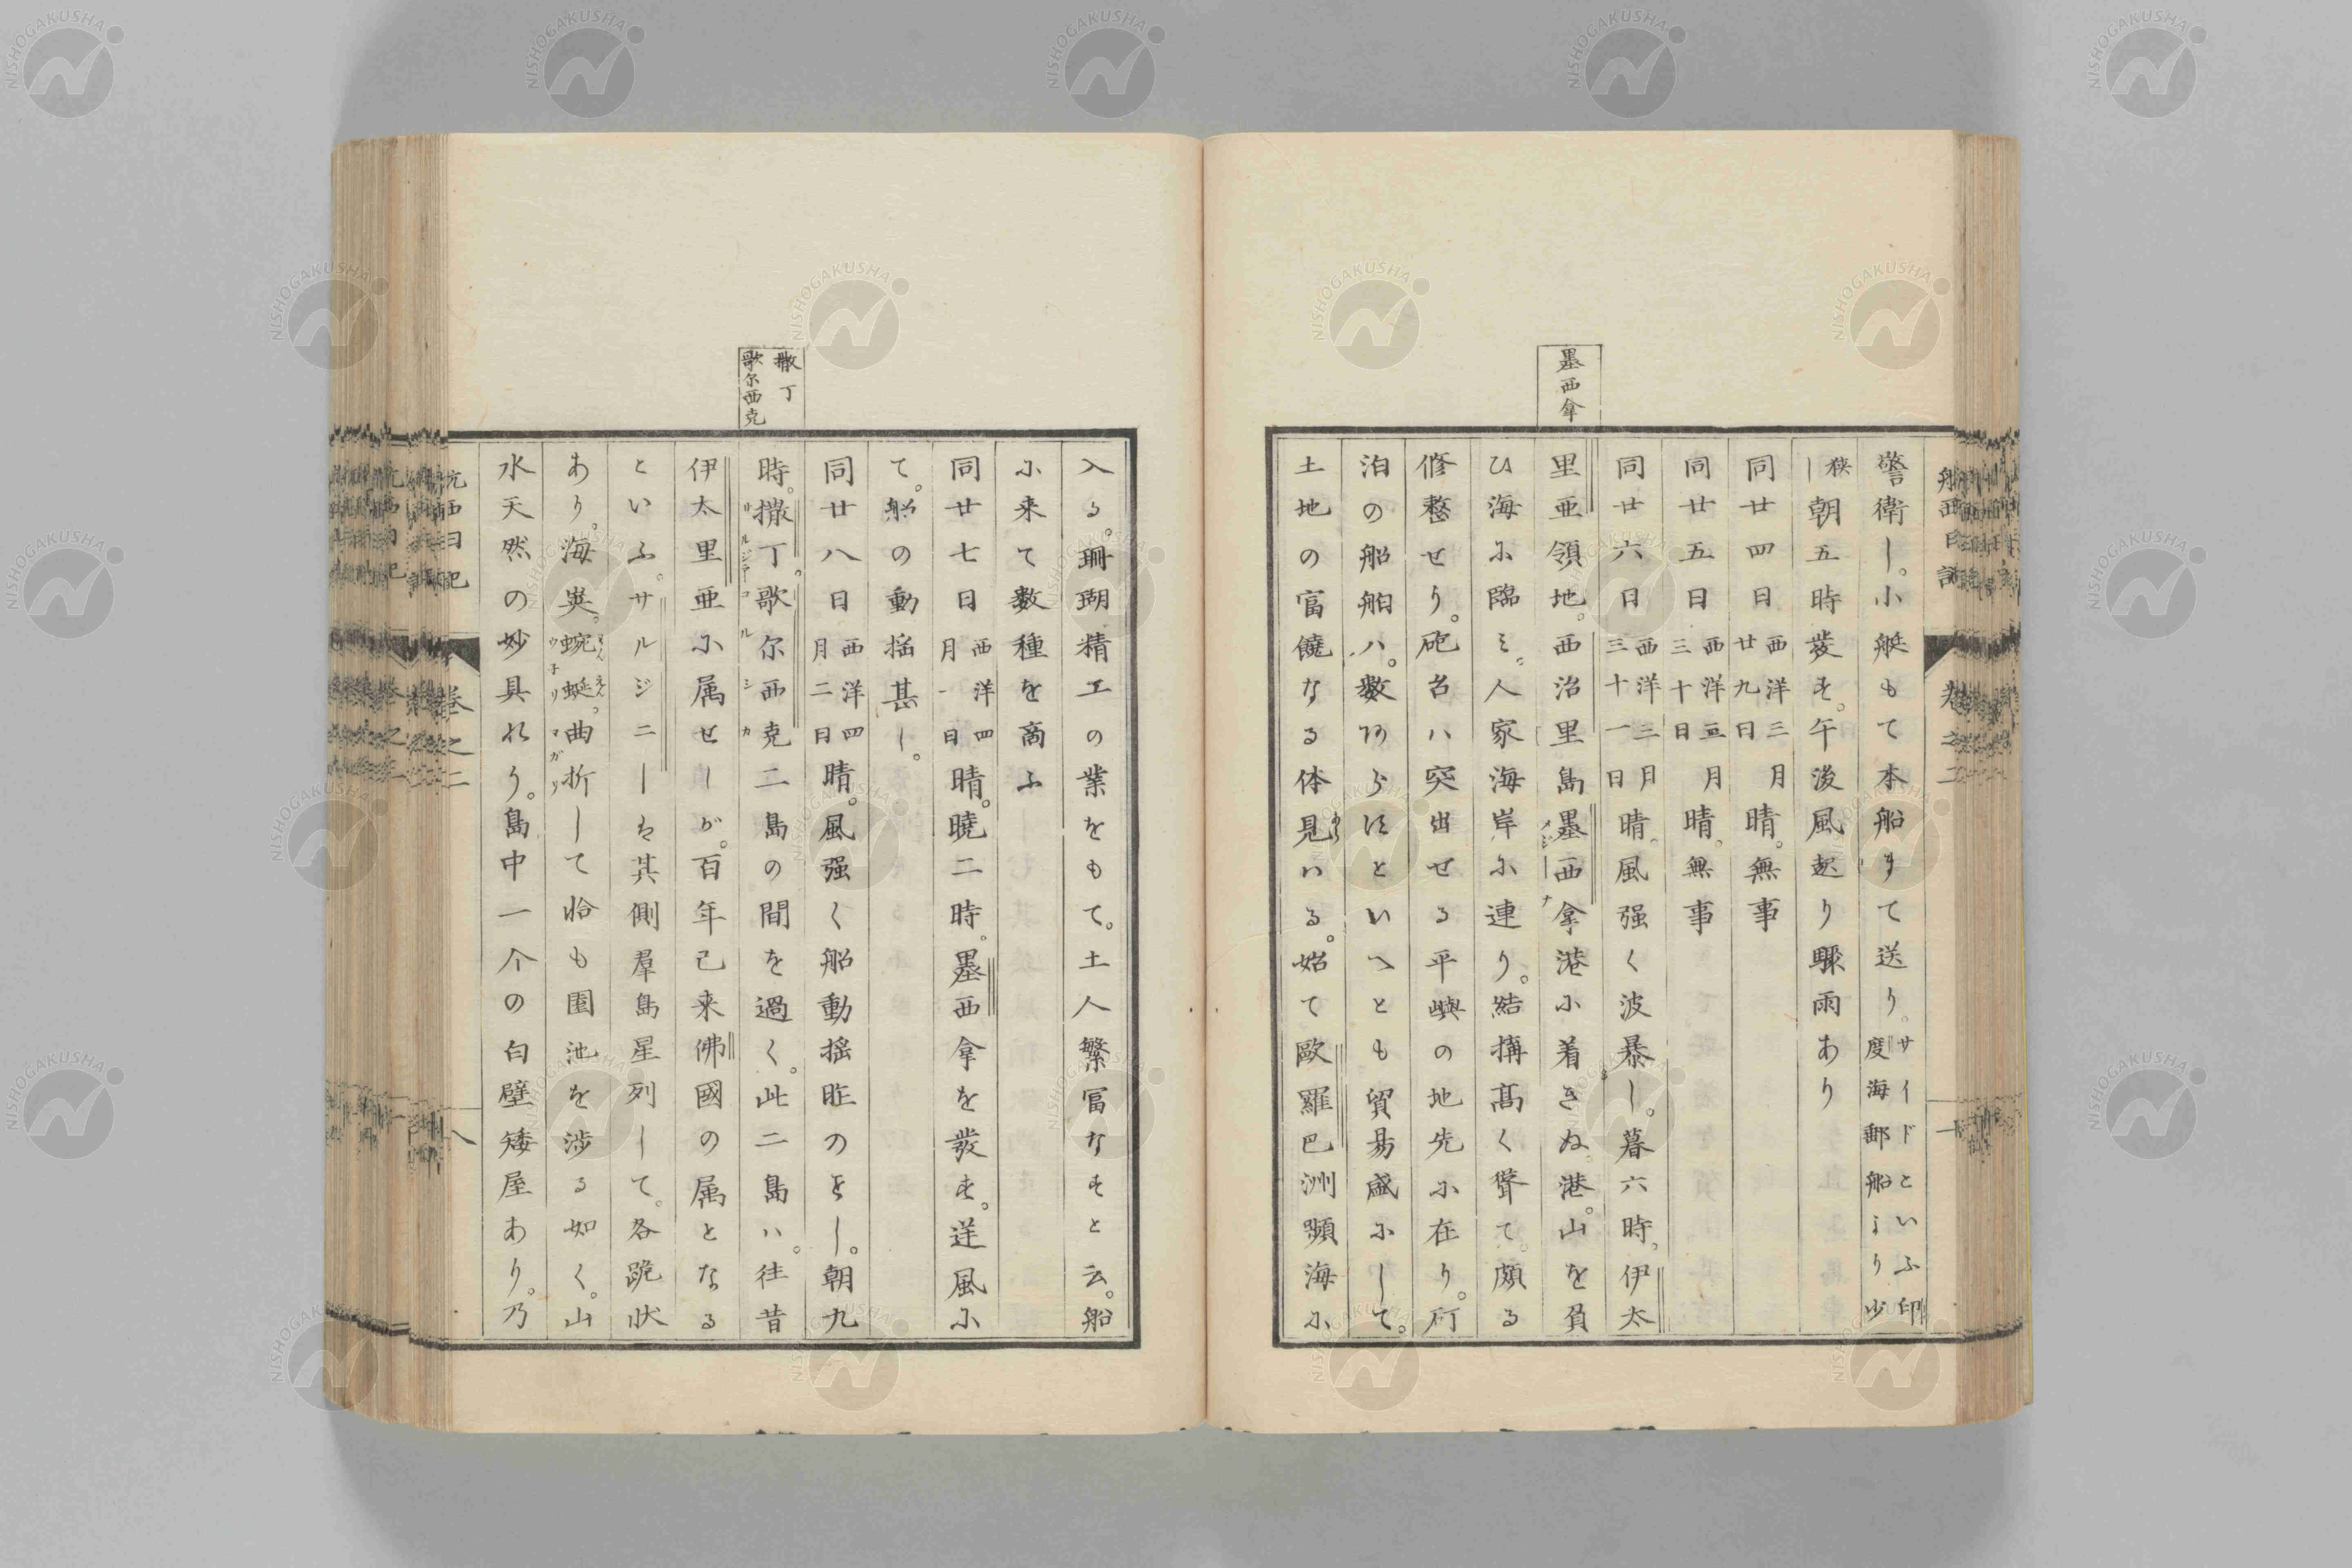 墨西拿
警衛し。小艇もて本船まて送り。サイドといふ印度海郵船より少
狭し朝五時発す。午後風起り驟雨あり
同廿四日西洋三月廿九日晴。無事
同廿五日西洋三月三十日晴。無事
同廿六日西洋三月三十一日晴。風强く波暴し。暮六時。伊太
里亜領地。西治里島墨西拿港に着きぬ。港。山を負
ひ海に臨ミ。人家海岸に連り。結搆髙く聳て。頗る
修整せり。砲台ハ突出せる平嶼の地先に在り。碇
泊の船舶ハ。数あらすといへとも貿易盛にして。
土地の富饒なる体見ハる。始て歐羅巴洲瀕海に
撒丁
歌尓西克
入る。珊瑚精工の業をもて。土人繁冨なすと云。船
に来て数種を商ふ
同廿七日西洋四月一日晴。曉二時。墨西拿を發す。逆風に
て。船の動揺甚し。
同廿八日西洋四月二日晴。風强く船動揺昨の如し。朝九
時。撒丁。歌尓西克二島の間を過く。此二島ハ。往昔
伊太里亜に属せしが。百年己来佛國の属となる
といふ。サルジニーは其側羣島星列して。各詭状
あり。海峽。蜿蜒。曲折して恰も園池を渉る如く。山
水天然の妙具れり。島中一介の白壁矮屋あり。乃
航西日記
巻之二
八